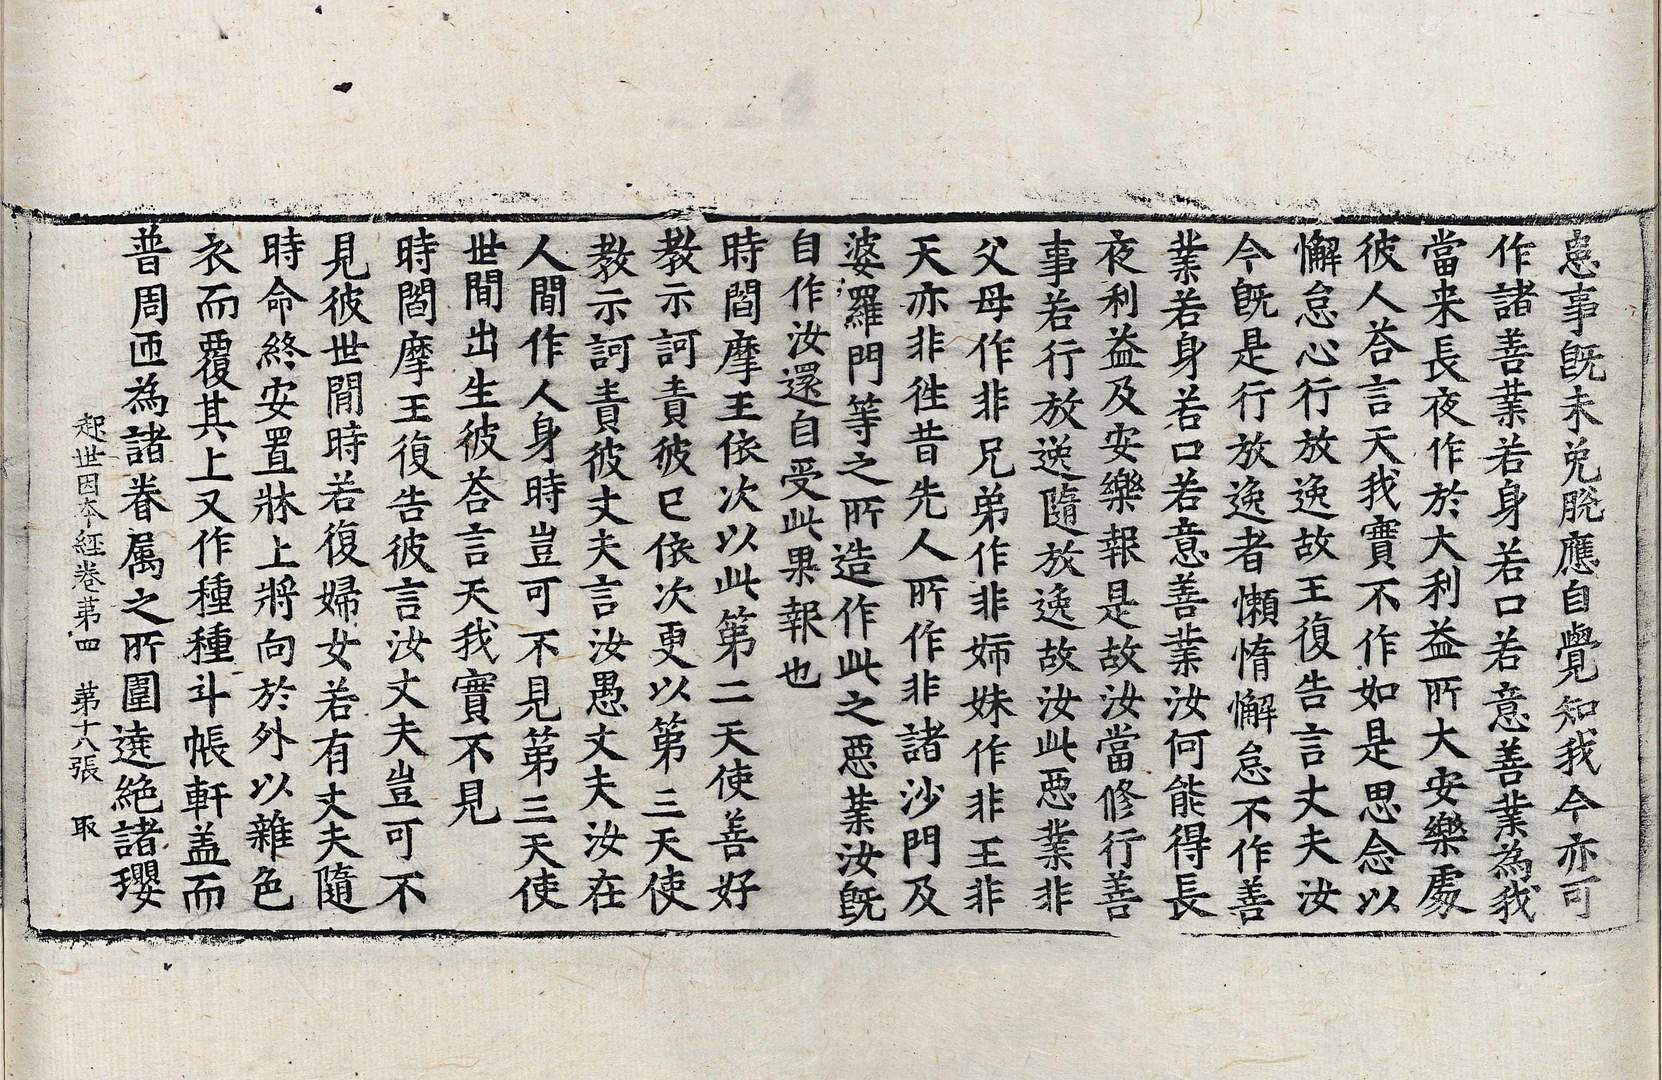 患事旣未免脫應自覺知我今亦可
作諸善業若身若口若意善業為我
當来長夜作於大利益所大安樂處
彼人荅言天我實不作如是思念以
懈怠心行放逸故王復告言丈夫汝
今旣是行放逸者懶惰懈怠不作善
業若身若口若意善業汝何能得長
夜利益及安樂報是故汝當修行善
事若行放逸隨放逸故汝此惡業非
父母作非兄弟作非姉妹作非王非
天亦非徃昔先人所作非諸沙門及
婆羅門等之所造作此之惡業汝旣
自作汝還自受此果報也
時閻摩王依次以此第二天使善好
教示訶責彼已依次更以第三天使
教示訶責彼丈夫言汝愚丈夫汝在
人間作人身時豈可不見第三天使
世間出生彼荅言天我實不見
時閻摩王復告彼言汝丈夫豈可不
見彼世間時若復婦女若有丈夫隨
時命終安置牀上將向於外以雜色
衣而覆其上又作種種斗帳軒盖而
普周迊為諸眷属之所圍遶絶諸瓔
起世因本經卷第四　第十八張　取